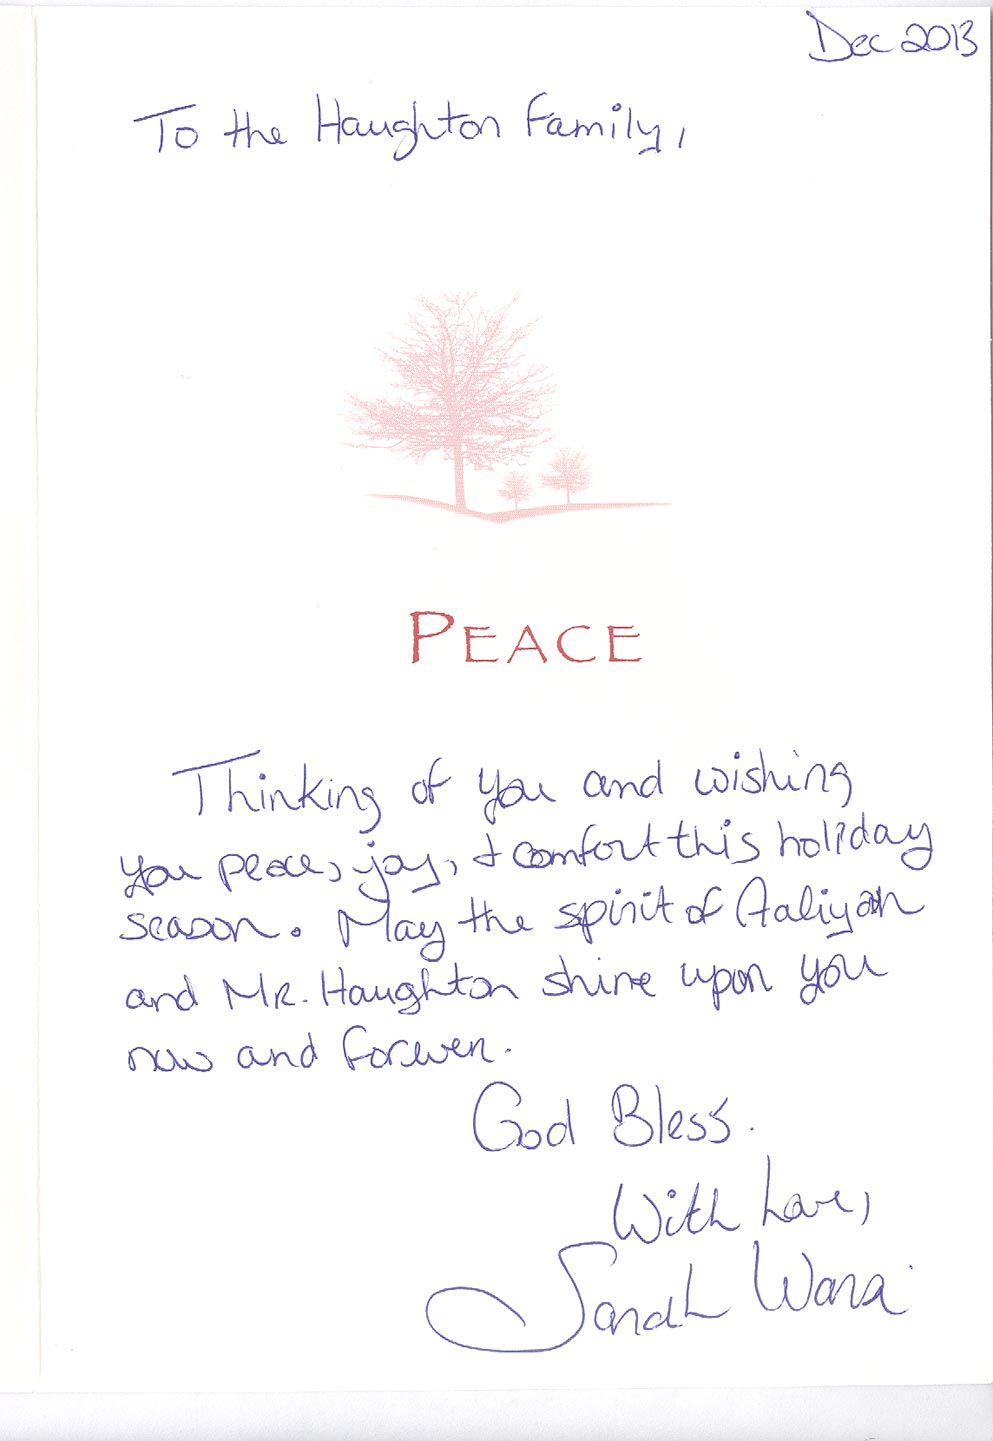 Dec 2013
To the Haughton Family,
PEACE
Thinking of you and wishing
you peace, joy, & comfort this holiday
season. May the spirit of Aaliyah
and MR. Haughton shine upon you
now and forever.
God Bless.
With Love,
Sarah